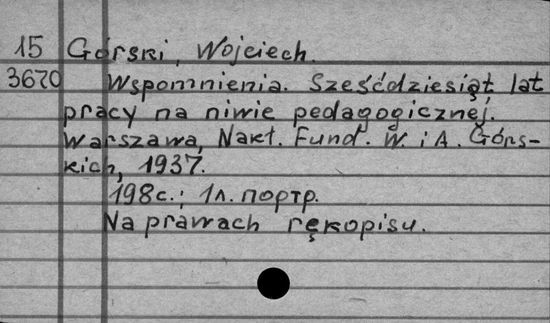 15 Górski, Wojciech.
3670 Wspomnienia. Sześćdziesiąt lat
pracy na niwie pedagogicznej.
Warszawa, Nakł. Fund. W. i A. Górs-
kich, 1937.
198с.; 1л. портр.
Na prawach rękopisu.